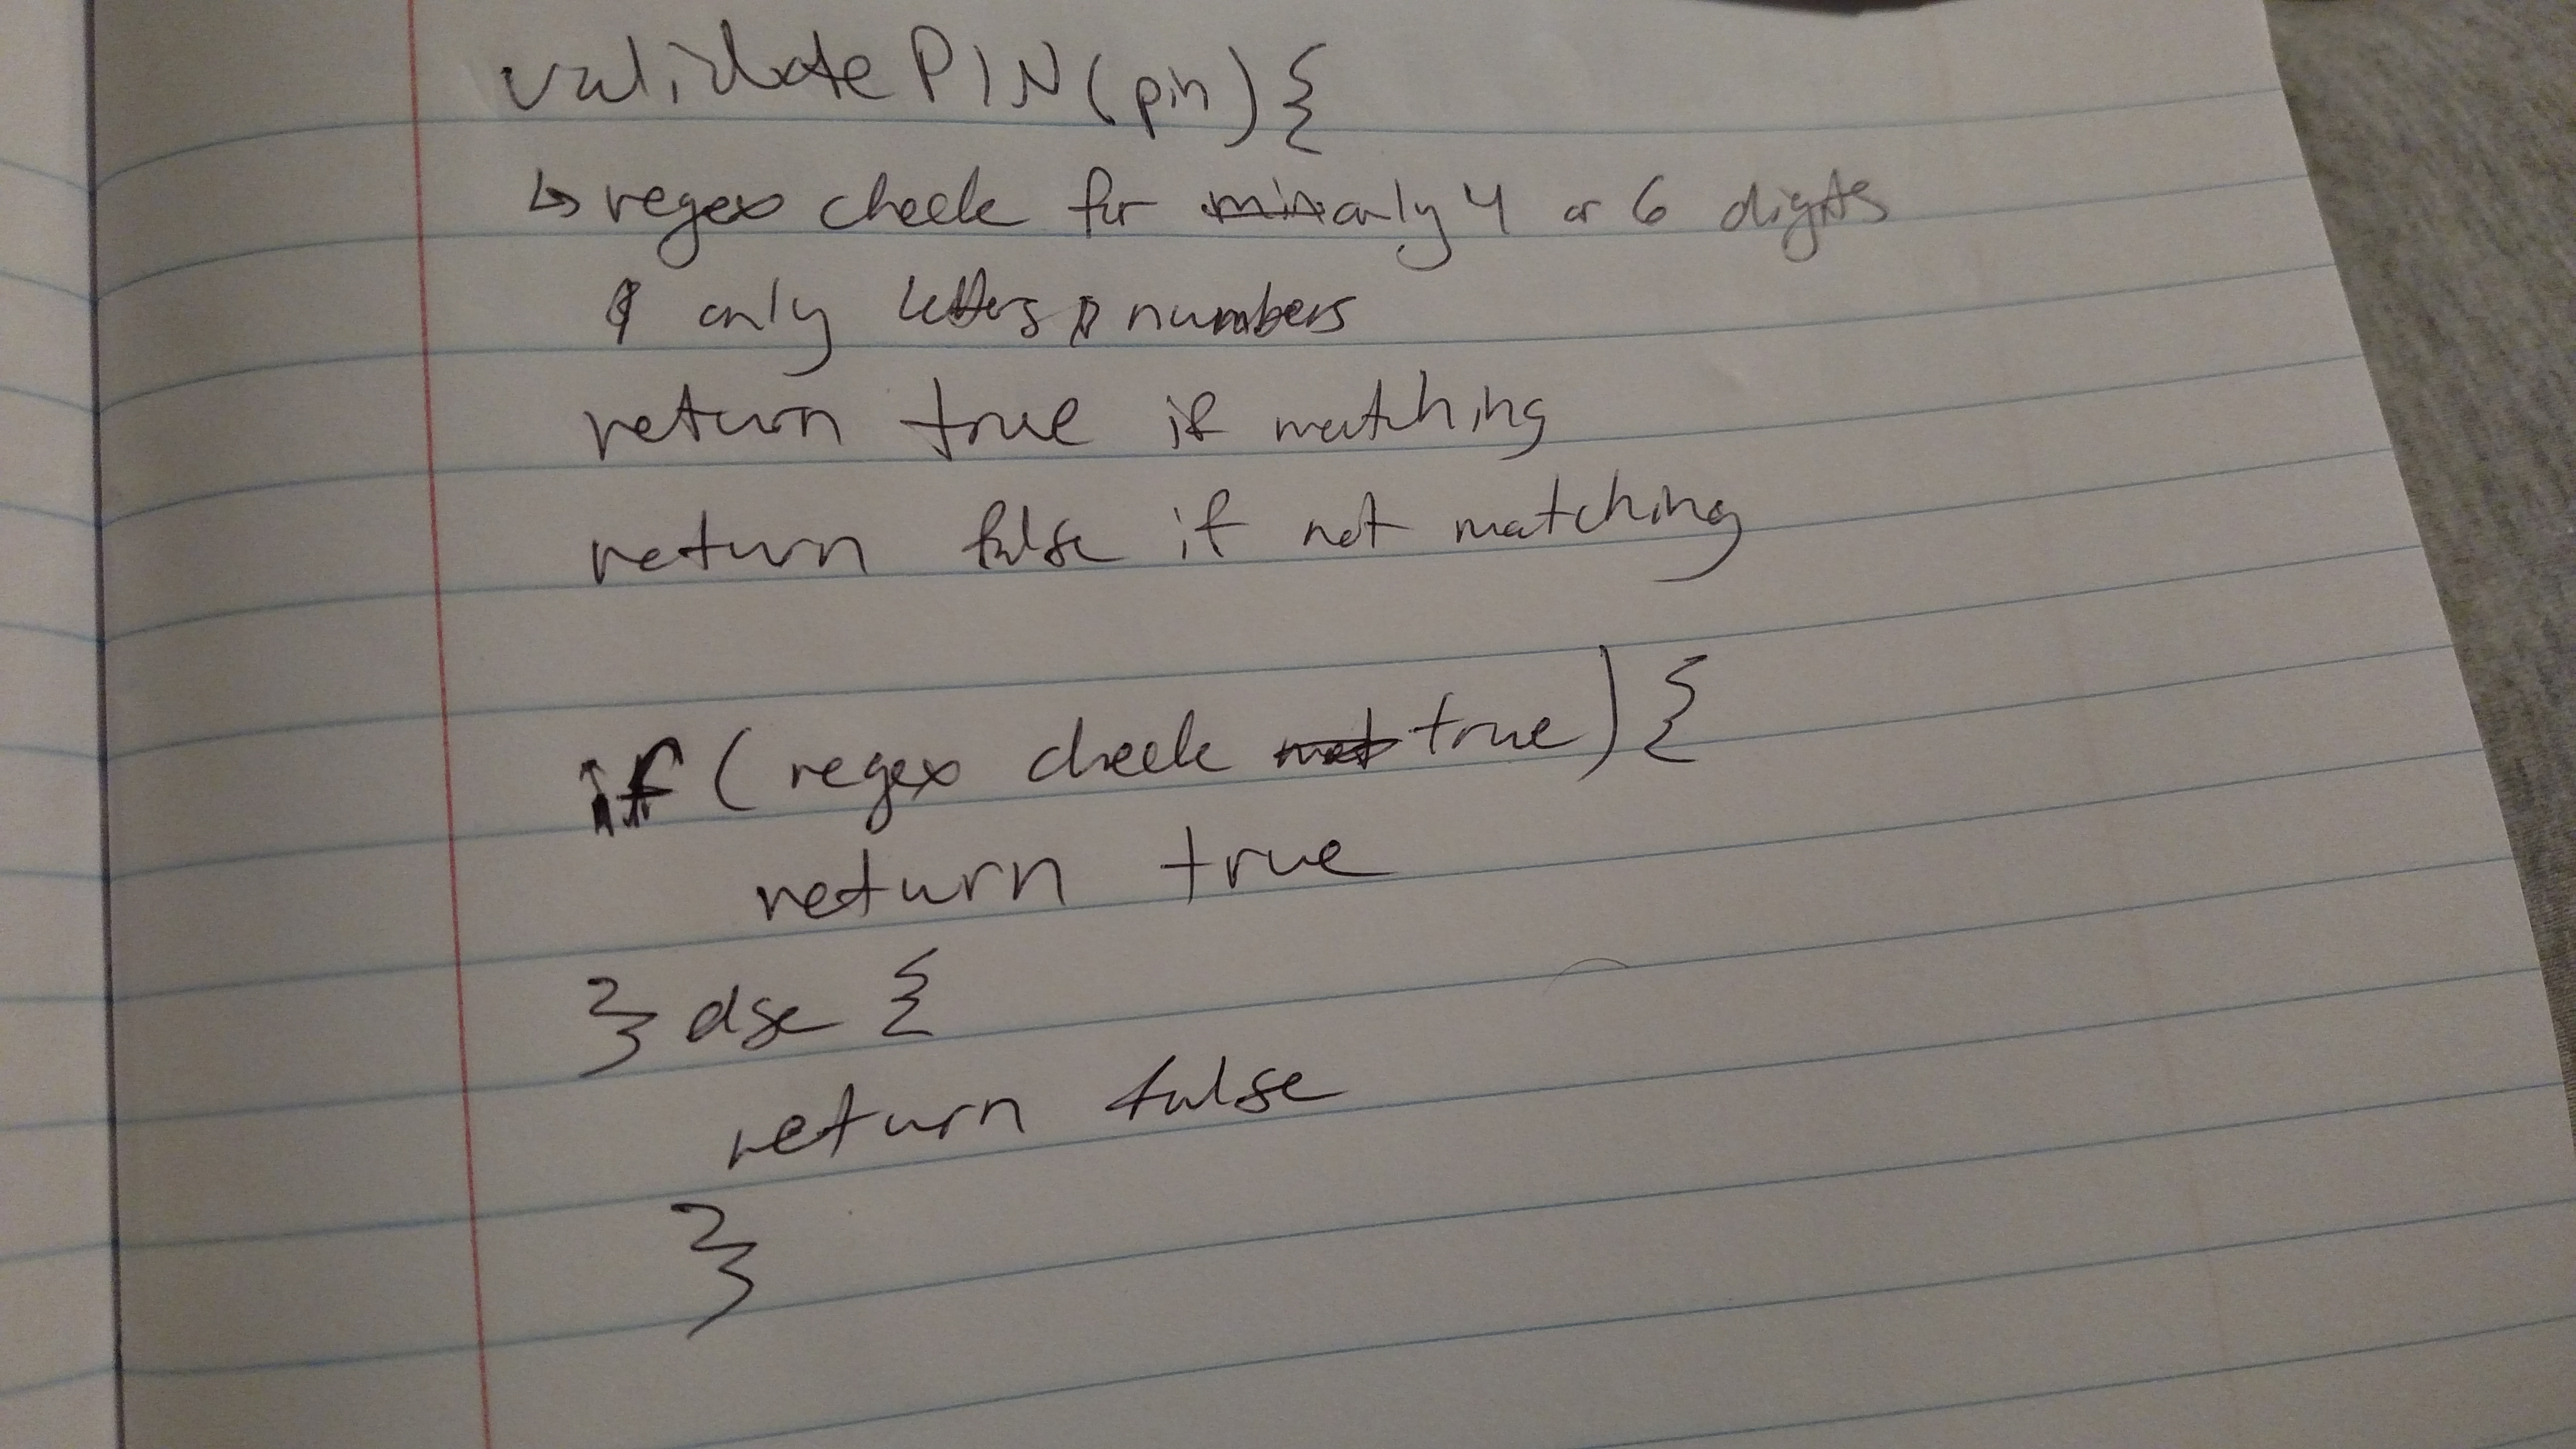 validatePIN(pin){
↳ regex check for only 4 or 6 digits
& only letters numbers
return true if matching
return false if not matching
if (regex check true) {
return true
} else {
return false
}